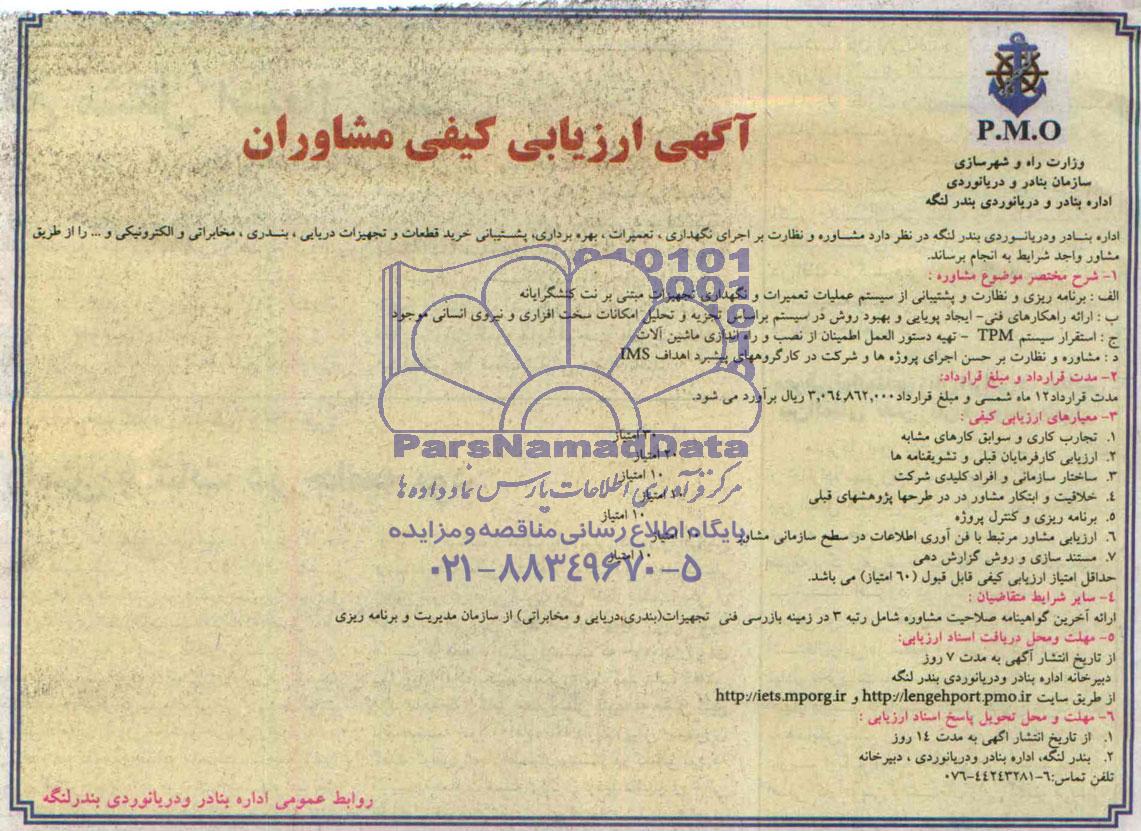 P.M.O
وزارت راه و شهرسازی
سازمان بنادر و دریانوردی
اداره بنادر و دریانوردی بندر لنگه
آگهی ارزیابی کیفی مشاوران
اداره بنادر ودریانوردی بندر لنگه در نظر دارد مشاوره و نظارت بر اجرای نگهداری ، تعمیرات ، بهره برداری، پشتیبانی خرید قطعات و تجهیزات دریایی ، بندری ، مخابراتی و الکترونیکی و ... را از طریق
مشاور واجد شرایط به انجام برساند.
۱- شرح مختصر موضوع مشاوره :
الف : برنامه ریزی و نظارت و پشتیبانی از سیستم عملیات تعمیرات و نگهداری تجهیزات مبتنی بر نت کنشگرایانه
ب : ارائه راهکارهای فنی- ایجاد پویایی و بهبود روش در سیستم براساس تجزیه و تحلیل امکانات سخت افزاری و نیروی انسانی موجود
ج : استقرار سیستم TPM - تهیه دستور العمل اطمینان از نصب و راه اندازی ماشین آلات
د : مشاوره و نظارت بر حسن اجرای پروژه ها و شرکت در کارگروههای پیشبرد اهداف IMS
۲- مدت قرارداد و مبلغ قرارداد:
مدت قرارداد۱۲ ماه شمسی و مبلغ قرارداد۳,۰۶۴,۸۶۲,۰۰۰ ریال برآورد می شود.
۳- معیارهای ارزیابی کیفی :
۱. تجارب کاری و سوابق کارهای مشابه ۳۰ امتیاز
۲. ارزیابی کارفرمایان قبلی و تشویقنامه ها ۲۰ امتیاز
۳. ساختار سازمانی و افراد کلیدی شرکت ۱۰ امتیاز
۴. خلاقیت و ابتکار مشاور در در طرحها پژوهشهای قبلی ۱۰ امتیاز
۵. برنامه ریزی و کنترل پروژه ۱۰ امتیاز
۶. ارزیابی مشاور مرتبط با فن آوری اطلاعات در سطح سازمانی مشاور امتیاز
۷. مستند سازی و روش گزارش دهی ۱۰ امتیاز
حداقل امتیاز ارزیابی کیفی قابل قبول (۶۰ امتیاز) می باشد.
۴- سایر شرایط متقاضیان :
ارائه آخرین گواهینامه صلاحیت مشاوره شامل رتبه ۳ در زمینه بازرسی فنی تجهیزات(بندری،دریایی و مخابراتی) از سازمان مدیریت و برنامه ریزی
۵- مهلت ومحل دریافت اسناد ارزیابی:
از تاریخ انتشار آگهی به مدت ۷ روز
دبیرخانه اداره بنادر ودریانوردی بندر لنگه
از طریق سایت http://lengehport.pmo.ir و http://iets.mporg.ir
۶- مهلت و محل تحویل پاسخ اسناد ارزیابی :
۱. از تاریخ انتشار اگهی به مدت ۱۴ روز
۲. بندر لنگه، اداره بنادر ودریانوردی ، دبیرخانه
تلفن تماس:۶-۴۴۲۴۳۲۸۱-۰۷۶
روابط عمومی اداره بنادر ودریانوردی بندرلنگه
ParsNamadData
مرکز فرآوری اطلاعات پارس نماد داده ها
پایگاه اطلاع رسانی مناقصه و مزایده
۰۲۱-۸۸۳۴۹۶۷۰-۵